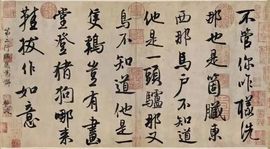 不管你咋樣洗
那也是箇臟東
西那馬戶不知道
他是一頭驢那又
鳥不知道他是一
隻鷄豈有畫
堂登豬狗哪來
鞋拔作如意